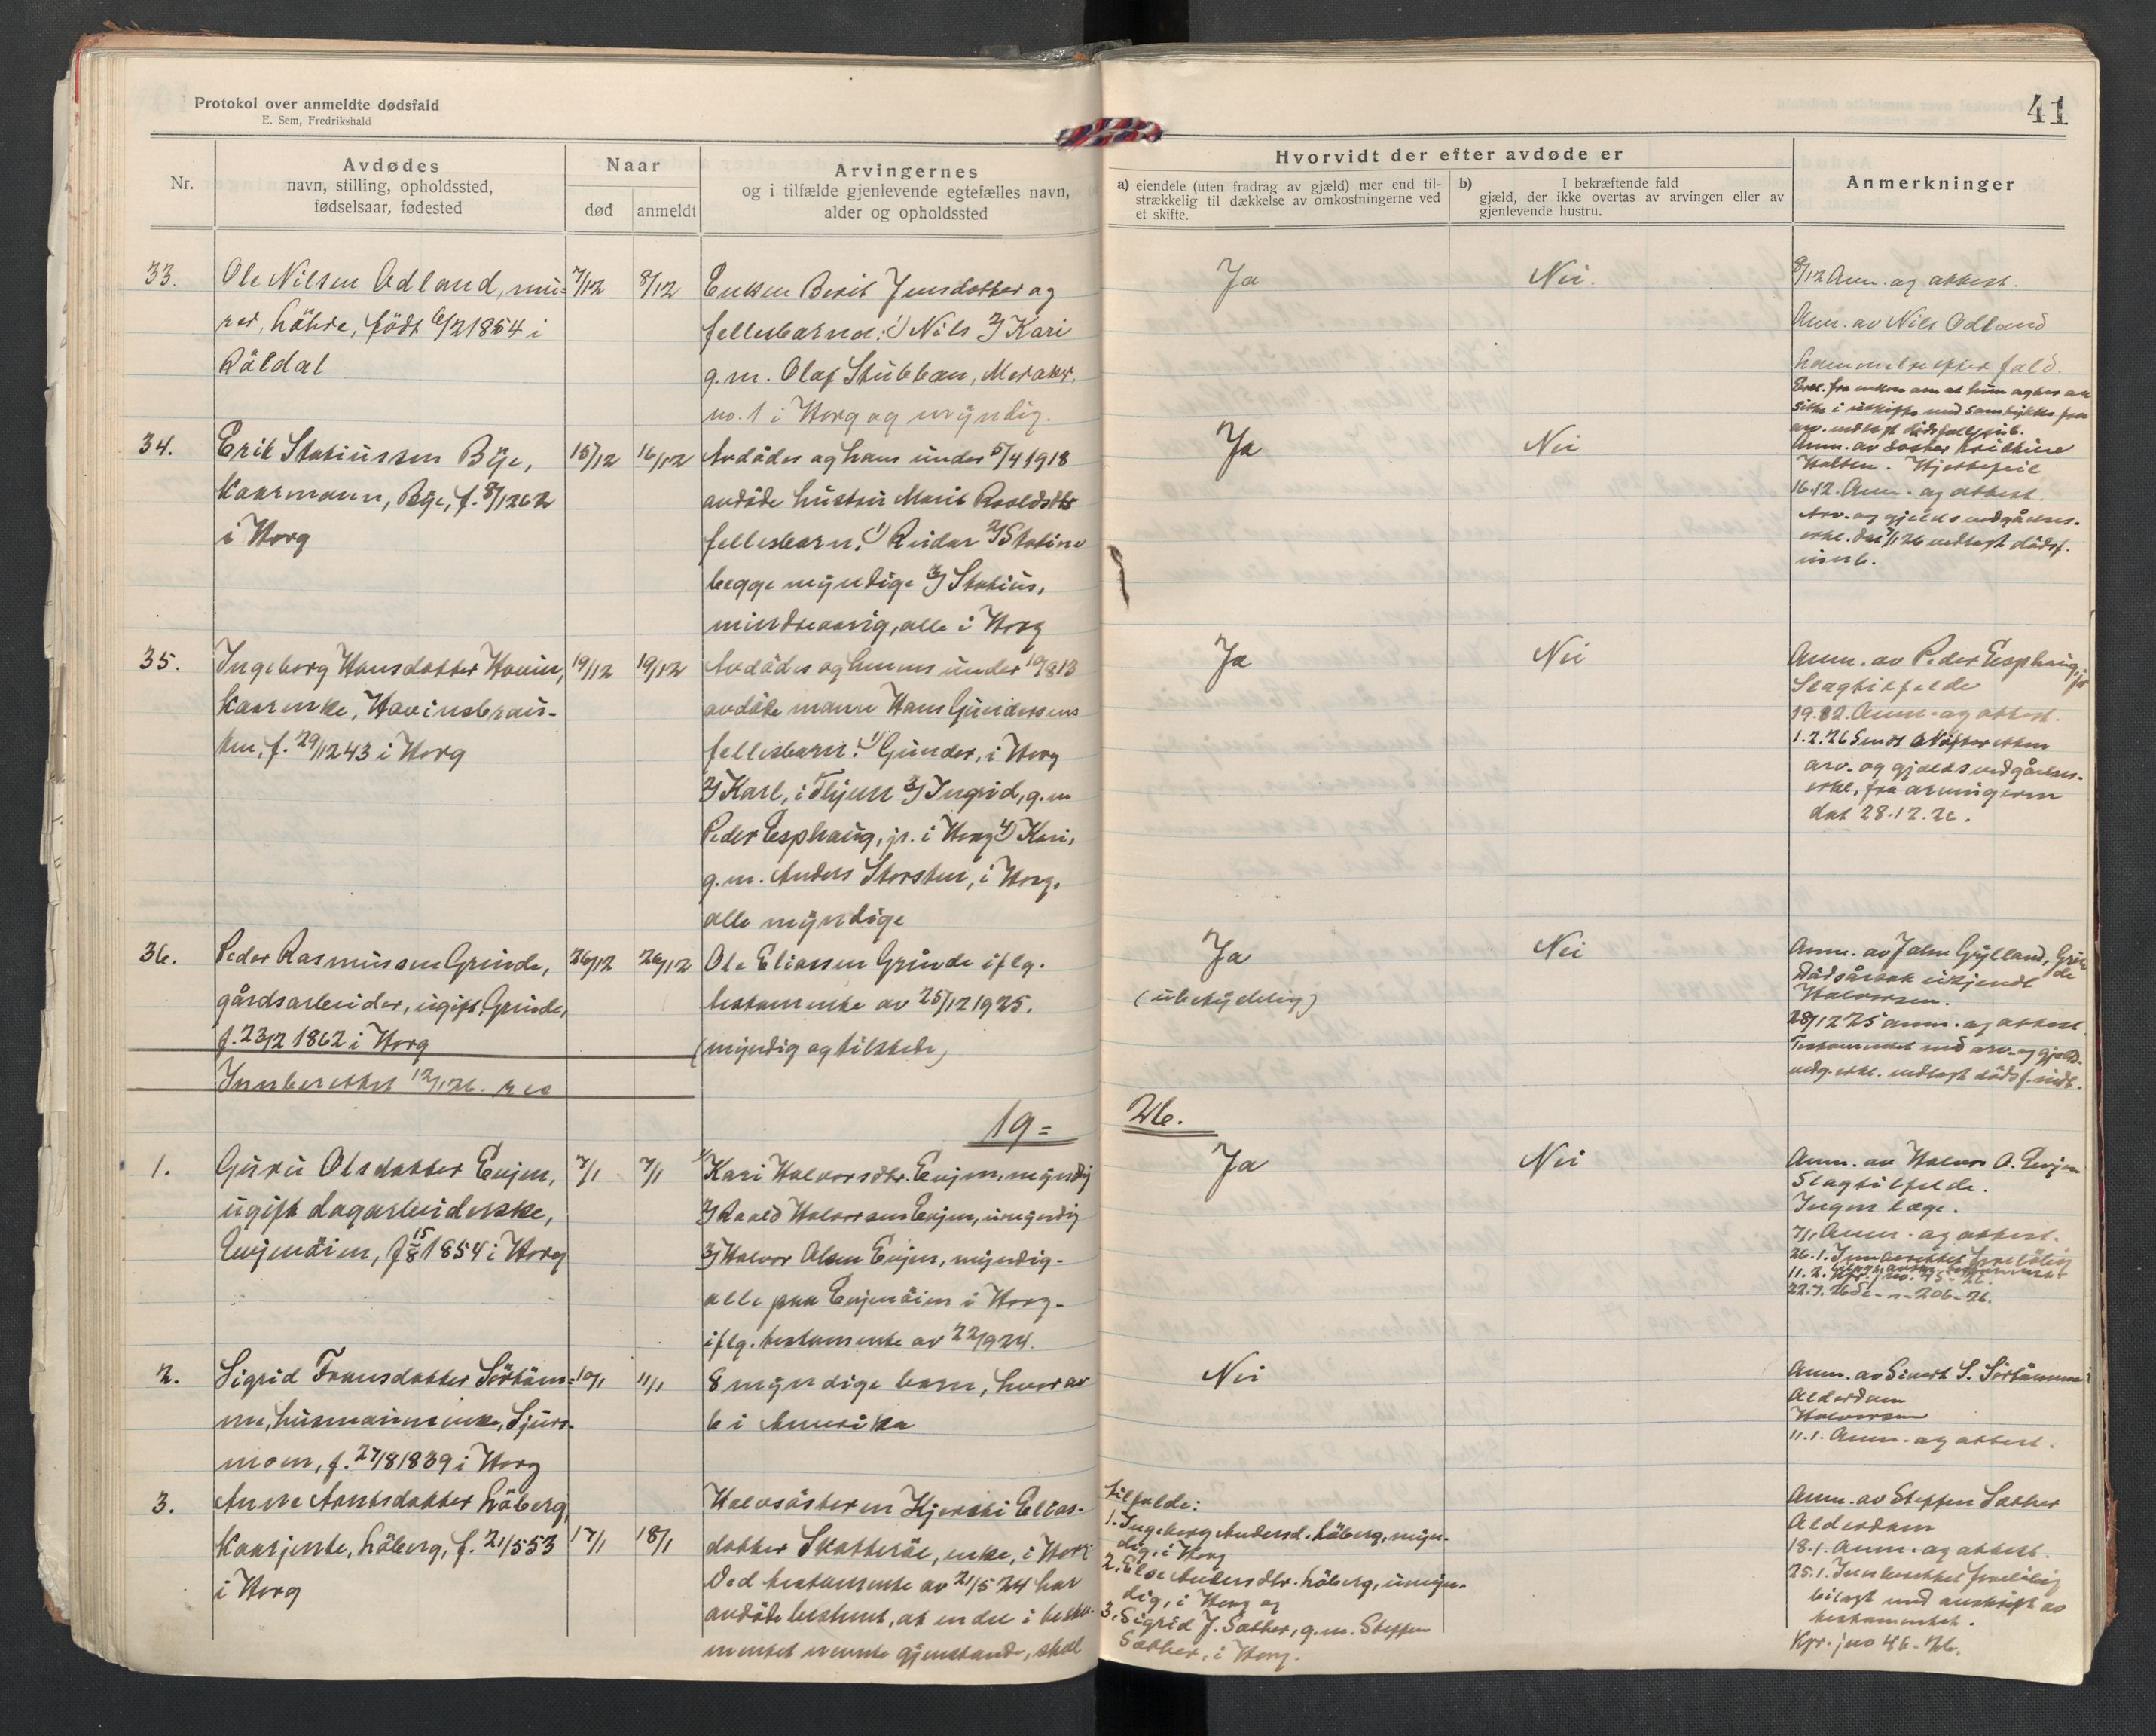 Protokol over anmeldte dødsfald
E. Sem, Fredrikshald
41
Nr.
Avdødes
navn, stilling, opholdssted,
fødselsaar, fødested
Naar
død
anmeldt
Arvingernes
og i tilfælde gjenlevende egtefælles navn,
alder og opholdssted
Hvorvidt der efter avdøde er
a) eiendele (uten fradrag av gjæld) mer end til-
strækkelig til dækkelse av omkostningerne ved
et skifte.
b) I bekræftende fald
gjæld, der ikke overtas av arvingen eller av
gjenlevende hustru.
Anmerkninger
33.
Ole Nilsen Odland, mu-
rer, Løhre, født 6/2 1854 i
Røldal
7/12
8/12
Enken Berit Jensdatter og
fellesbarna: 1) Nils 2) Kari
g.m. Olaf Stubban, Meraker,
no. 1 i Horg og myndig.
Ja
Nei.
8/12 Anm. og attest.
Anm. av Nils Odland
34.
Erik Statiussen Bye,
Kaarmann, Bye, f. 8/12 62
i Horg
15/12
16/12
Avdødes og hans under 5/4 1918
avdøde hustru Marit Roaldsdtr
fellesbarn: 1) Reidar 2) Statine
begge myndige 3) Statius,
mindreaarig, alle i Horg
Ja
Nei
16.12. Anm. og attest.
Arv- og gjeldsvedgåelses-
erkl. dat 7/1 26 vedlagt dødsf.
innb.
35.
Ingeborg Hansdatter Hovin,
Kaarenke, Hovinsbrau-
ten, f. 29/12 43 i Horg
19/12
19/12
Avdødes og hennes under 19/8 13
avdøde mann Hans Gundersens
fellesbarn: 1) Gunder, i Horg
2) Karl, i 3) Ingrid, g.m
Peder Esphaug, jr. i Horg 4) Kari,
g.m. Anders Storsten, i Horg.
alle myndige
Ja
Nei
Anm. av Peder Esphaug, jr
Slagtilfelde
19.12. Anm. og attest.
1.2.26 Sendt
arv- og gjeldsvedgåelses-
erkl. fra arvingerne
dat 28.12.26.
36.
Peder Rasmussen Grinde,
gårdsarbeider, ugift, Grinde,
f. 23/2 1862 i Horg
26/12
26/12
Ole Eliassen Grinde iflg.
testamente av 25/12 1925.
(myndig og tilstede)
Ja
(ubetydelig)
Nei
Anm. av John Gylland, Grin
de
Dødsårsak ukjendt
Halvorsen.
28/12 25 anm. og attest
Testamentet med arv- og gjeld-
vedg. erkl. vedlagt dødsf. indb.
Innberettet 12/1 26.
19=
26.
1.
Guru Olsdatter Evjen,
ugift dagarbeiderske,
Evjenøien, f 15/8 1854 i Horg
7/1
7/1
1) Kari Halvorsdtr. Evjen, myndig
2) Roald Halvorsen Evjen, umyndig
3) Halvor Olsen Evjen, myndig-
alle paa Evjenøien i Horg-
iflg. testamente av 22/9 24.
Ja
Nei
Anm. av Halvor O. Evjen
Slagtilfelde.
Ingen læge.
7/1 Anm. og attest.
26.1. Innberettet foreløbig
11.2. Kpr. j no. 75-26.
22.7.26 do - " - 206-26.
2.
Sigrid Fransdatter Sørtøm-
me, husmannsenke, Sjurs-
moen, f. 27/8 1839 i Horg
10/1
11/1
8 myndige barn, hvorav
6 i Amerika
Nei
Anm. av Sivert S. Sørtømme
Alderdom
Halvorsen
11.1. Anm. og attest.
3.
Anne Arntsdatter Løberg,
Kaarjente, Løberg, f. 21/5 53
i Horg
17/1
18/1
Halvsøsteren Kjersti Elias-
datter Skatterøe, enke, i Horg
Ved testamente av 21/5 24 har
avdøde bestemt, at en del i testa-
mentet nevnte gjenstande, skal
tilfalde:
1. Ingeborg Andersd. Løberg, myn-
dig, i Horg
2. Else Andersdtr. Løberg, umyn-
dig, i Horg og
3. Sigrid J. Sæther, g.m. Steffen
Sæther, i Horg.
Anm. av Steffen Sæther
Alderdom
18.1. Anm. og attest.
25.1. Innberettet foreløbig
bilagt med avskrift av
testamentet.
Kpr. j no 46-26.